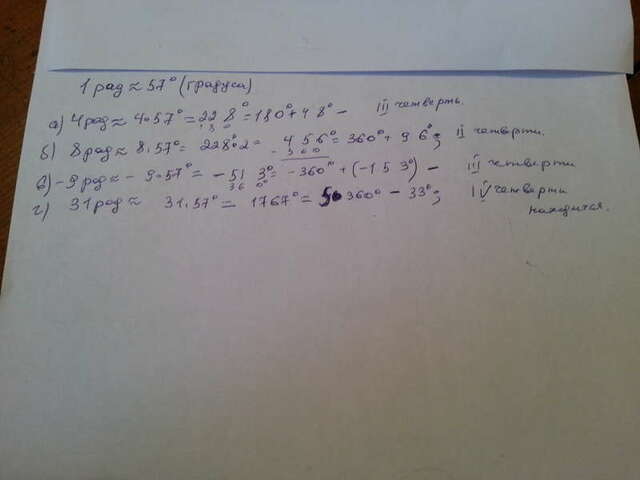 1 рад ≈ 57° (градуса)
а) 4 рад ≈ 4·57° = 228° = 180° + 48° – III четверть.
180
б) 8 рад ≈ 8·57° = 228°·2 = 456° = 360° + 96°; II четверти.
- 360
в) -9 рад ≈ - 9·57° = - 513° = - 360° + (-153°) – III четверти
360°
г) 31 рад ≈ 31·57° = 1767° = 5·360° - 33°; IV четверти
находится.